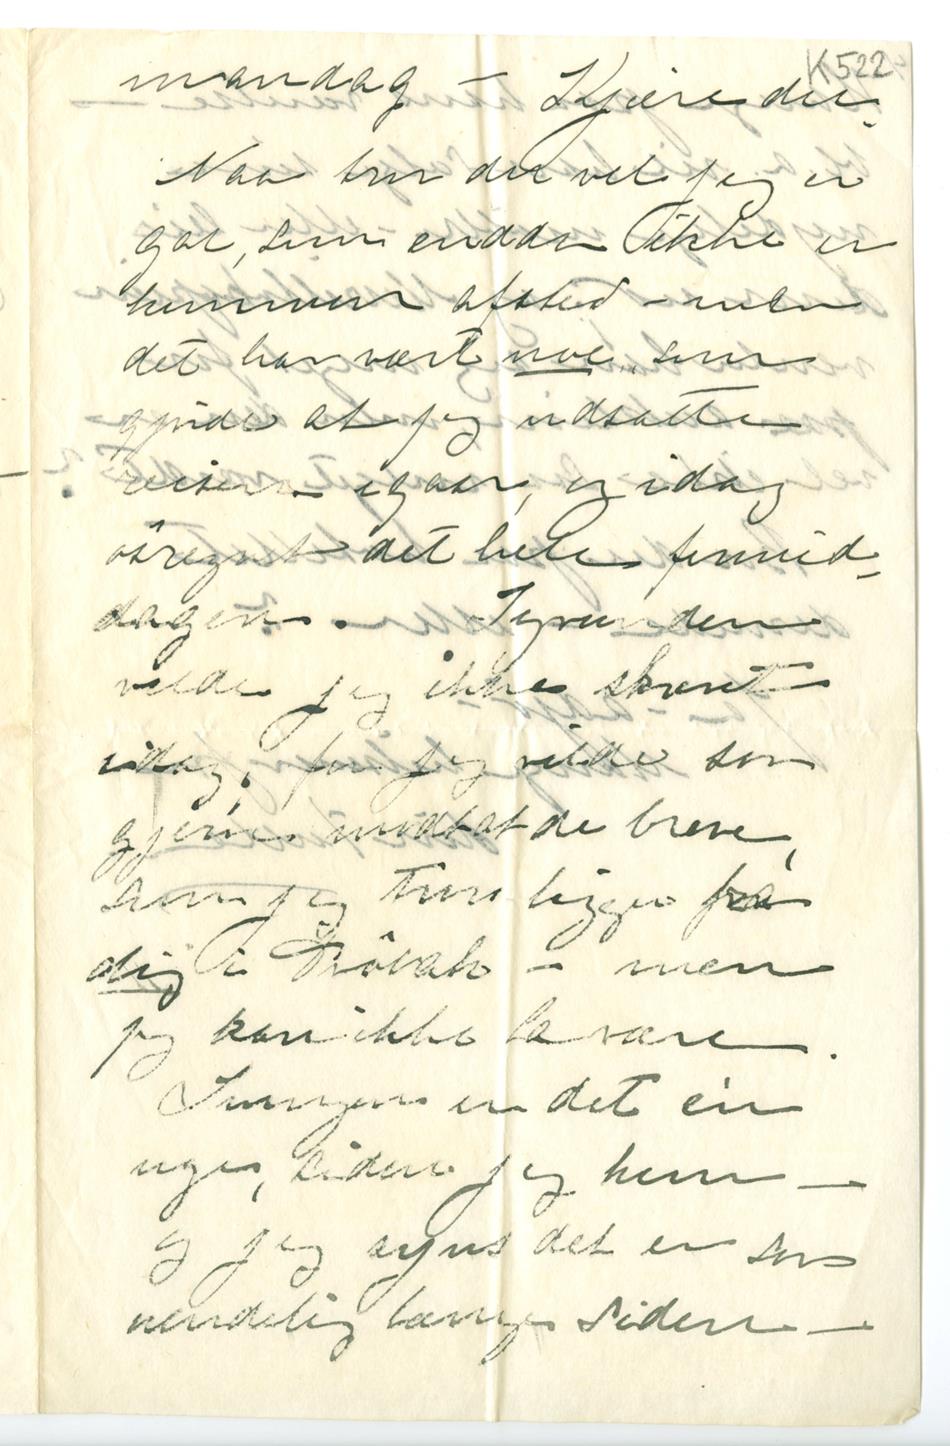 K522
mandag – Kjære du.
Naa tror du vel jeg er
gal, som endda ikke er
kommen afsted – men
det har vært noe, som
gjorde at jeg udsatte
reisen igaar, og idag
ôsregnet det hele formid-
dagen.
vilde jeg ikke skrevet
idag, for jeg vilde saa
gjerne modtat de breve,
som jeg tror ligger fra
dig i Drôbak – men
jeg kan ikke la være.
Imorgen er det ein
uge, siden jeg kom –
og jeg synes det er saa
uendelig længe siden –